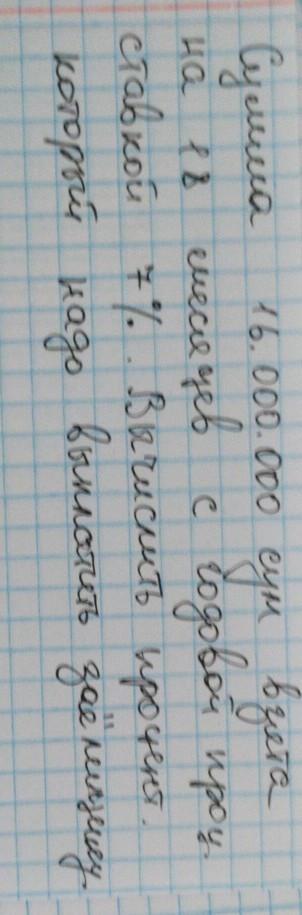 Сумма 16.000.000 сум взята
на 18 месяцев с годовой проц.
ставкой 7%. Вычислить процент.
который надо выплатить заёмщику.